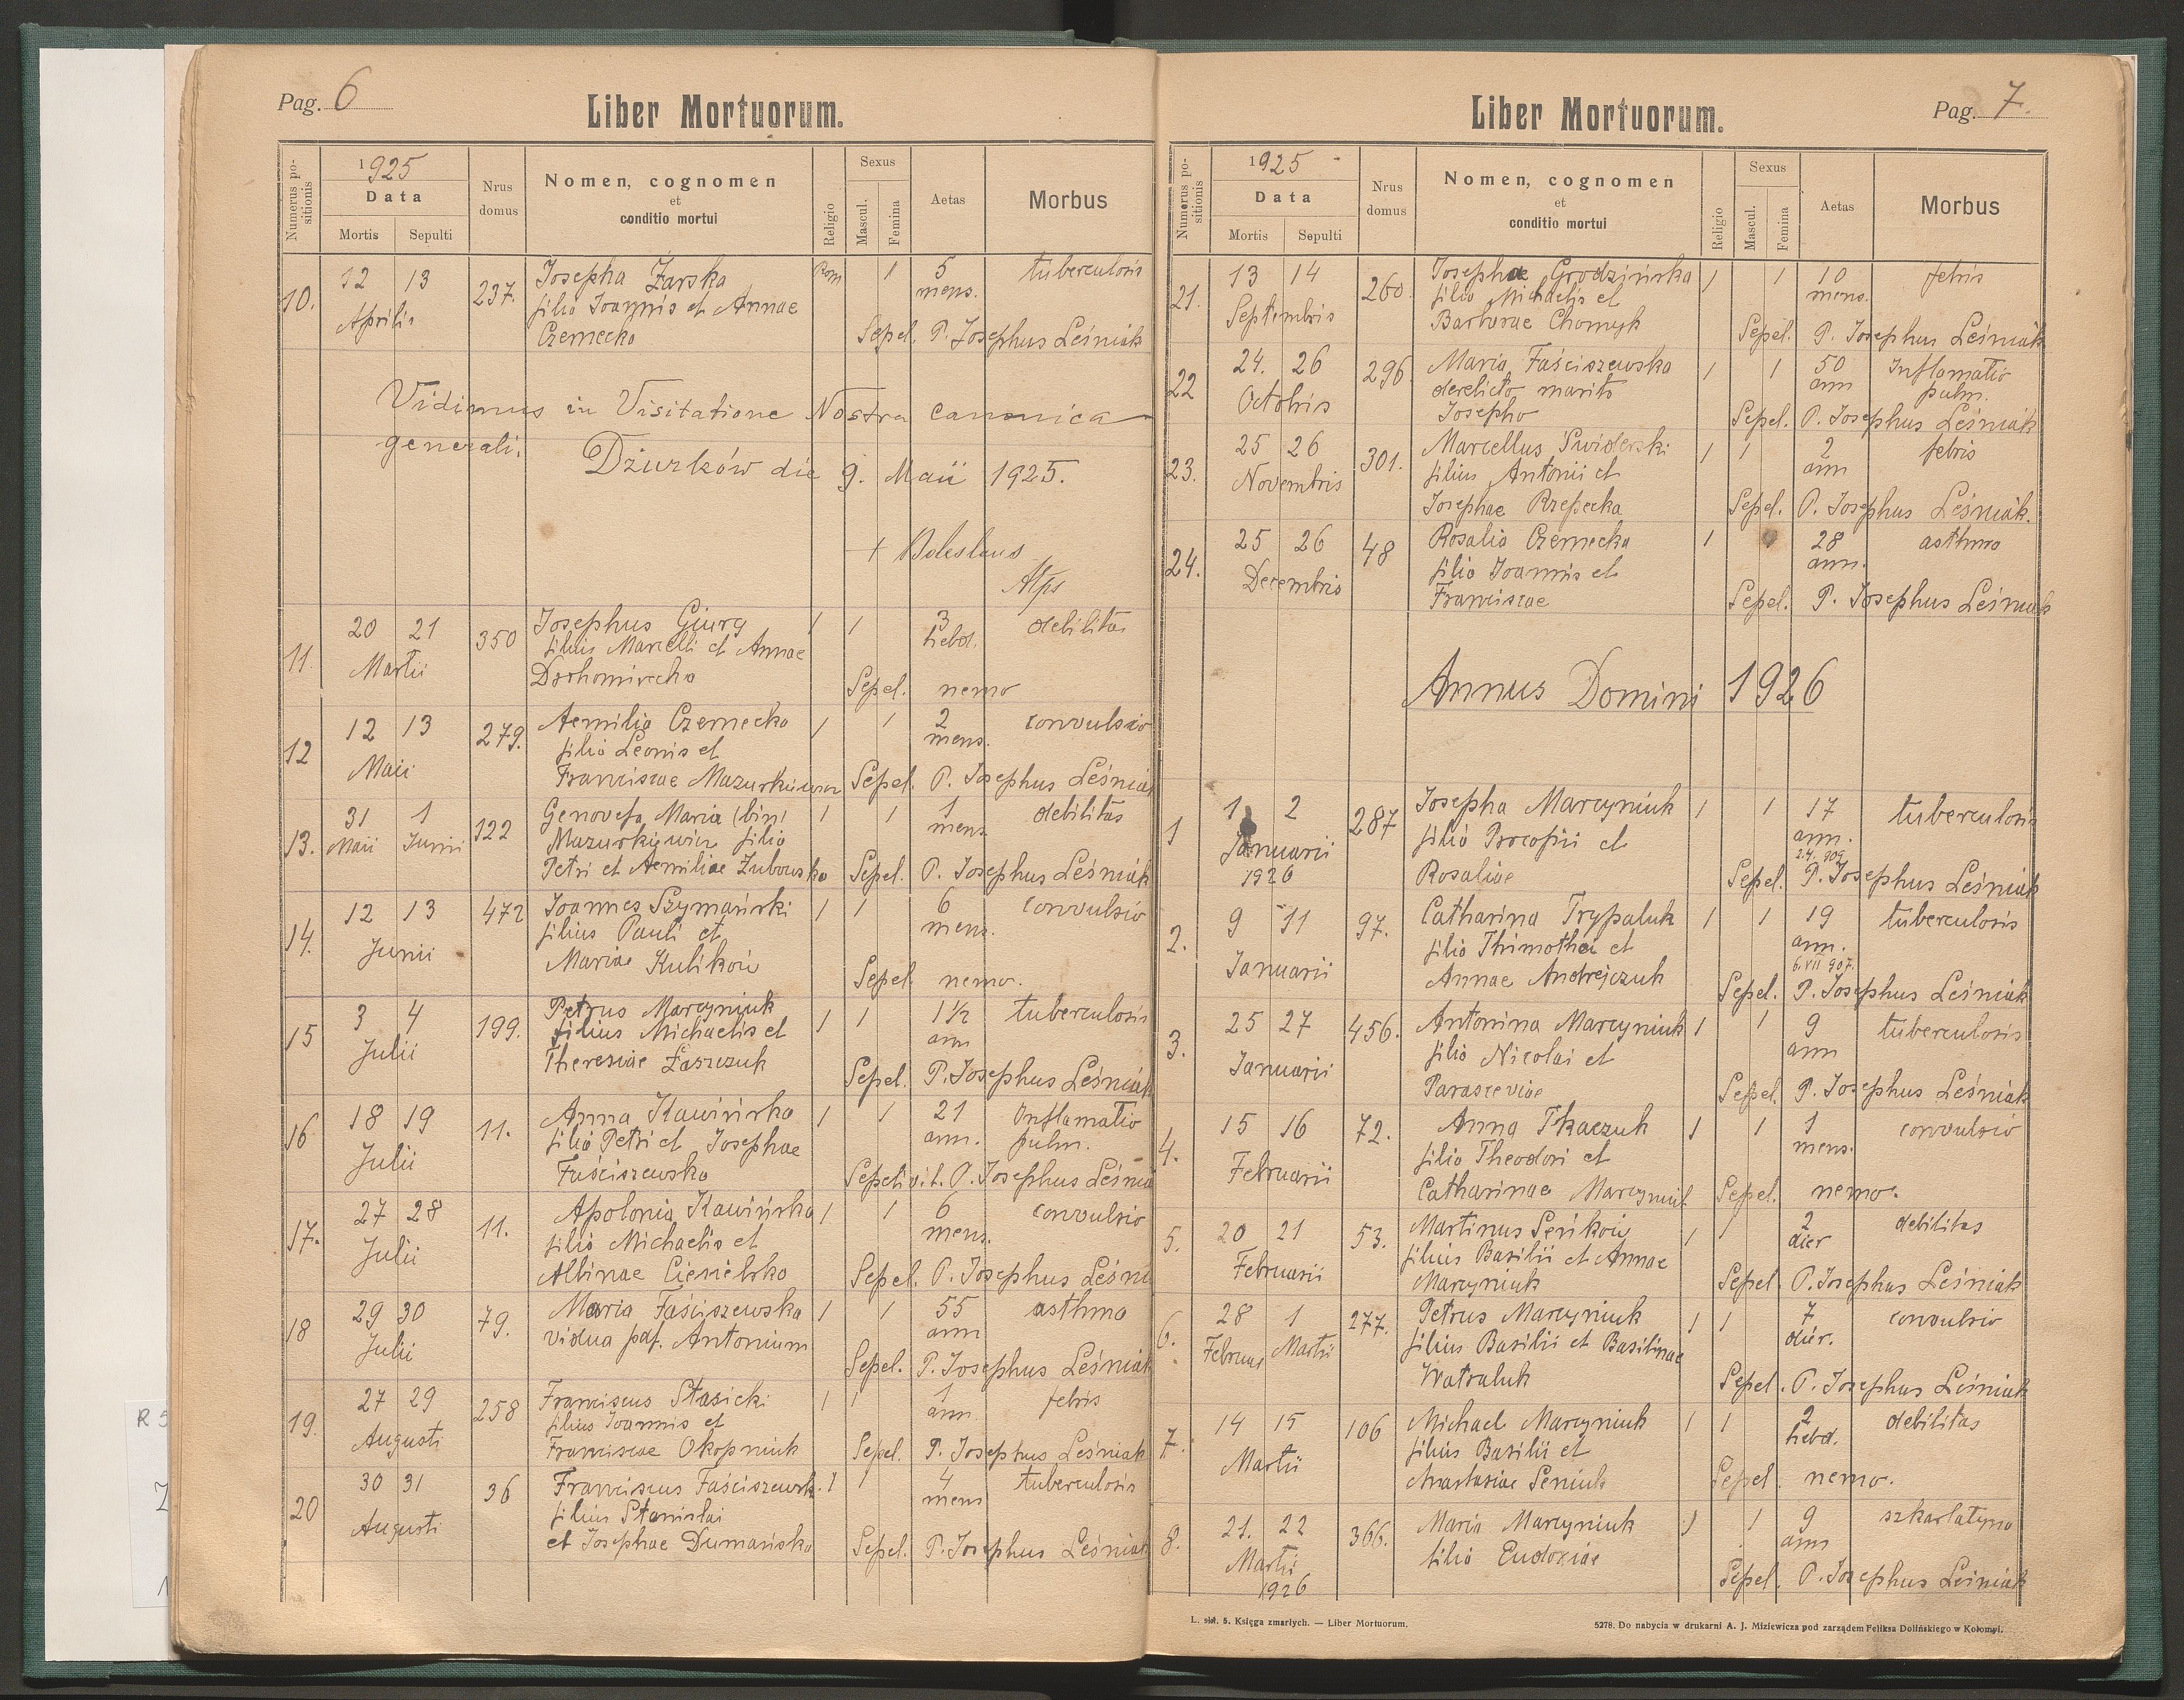 Pag. 6
Liber Mortuorum.
Numerus positionis
1925
Data
Mortis Sepulti
Nrus domus
Nomen, cognomen
et
conditio mortui
Religio
Sexus
Mascul. Femina
Aetas
Morbus
10. 12 13 237. Josepha Żarska Rom 1 5 tuberculosis
Aprilis filia Joannis et Annae mens.
Czernecka Sepel. P. Josephus Leśniak
Vidimus in Visitatione Nostra canonica
generali.
Dżurków die 9. Maii 1925.
+ Boleslaus
20 21 350 Josephus Giurg 1 1 3 debilitas
11. Martii filius Marcelli et Annae hebd.
Sepel. nemo
12 12 13 279. Aemilia Czernecka 1 1 2 convulsio
Maii filia Leonis et mens.
Franciscae Mazurkiewicz Sepel. P. Josephus Leśniak
13. 31 1 122 Genovefa Maria (bin) 1 1 1 debilitas
Maii Junii Mazurkiewicz filia mens.
Petri et Aemiliae Zubowska Sepel. P. Josephus Leśniak
14. 12 13 472 Joannes Szymański 1 1 6 convulsio
Junii filius Pauli et mens.
Mariae Kulików Sepel. nemo.
15 3 4 199. Petrus Marcyniuk 1 1 1½ tuberculosis
Julii filius Michaelis et ann
Theresiae Łaszczuk Sepel. P. Josephus Leśniak
16 18 19 11. Anna Kawińska 1 1 21 Inflamatio
Julii filia Petri et Josephae ann. pulm.
Faściszewska Sepelivit. P. Josephus Leśnia
17. 27 28 11. Apolonia Kawińska 1 1 6 convulsio
Julii filia Michaelis et mens.
Albinae Ciesielska Sepel. P. Josephus Leśni
18 29 30 79. Maria Faściszewska 1 1 55 asthma
Julii vidua post Antonium ann
Sepel. P. Josephus Leśniak
19. 27 29 258 Franciscus Stasicki 1 1 1 febris
Augusti filius Joannis et ann.
Franciscae Okopniuk Sepel. P. Josephus Leśniak
20 30 31 36 Franciscus Faściszewsk. 1 1 4 tuberculosis
Augusti filius Stanislai mens
et Josephae Dumańska Sepel. P. Josephus Leśniak
Liber Mortuorum.
Pag. 7.
Numerus positionis
1925
Data
Mortis Sepulti
Nrus domus
Nomen, cognomen
et
conditio mortui
Religio
Sexus
Mascul. Femina
Aetas
Morbus
21. 13 14 260. Josepha Grodzińska 1 1 10 febris
Septembris filia Michaelis et mens.
Barbarae Chomyk Sepel. P. Josephus Leśniak
22 24. 26 296. Maria Faściszewska 1 1 50 Inflamatio
Octobris derelicto marito ann pulm.
Josepho Sepel. P. Josephus Leśniak
23. 25 26 301. Marcellus Swiderski 1 1 2 febris
Novembris filius Antonii et ann
Josephae Rzepecka Sepel. P. Josephus Leśniak.
24. 25 26 48 Rosalia Czernecka 1 28 asthma
Decembris filia Joannis et ann.
Franciscae Sepel. P. Josephus Leśniak
Annus Domini 1926
1 1 2 287 Josepha Marcyniuk 1 1 17 tuberculosis
Januarii filia Procopii et ann.
2.4. 909
1926 Rosaliae Sepel. P. Josephus Leśniak
2. 9 11 97. Catharina Trypaluk 1 1 19 tuberculosis
Januarii filia Thimothei et ann.
6.VII 907.
Annae Andrejczuk Sepel. P. Josephus Leśniak
3. 25 27 456. Antonina Marcyniuk 1 1 9 tuberculosis
Januarii filia Nicolai et ann
Parasceviae Sepel. P. Josephus Leśniak
4. 15 16 72. Anna Tkaczuk 1 1 1 convulsio
Februarii filia Theodori et mens.
Catharinae Marcyniuk Sepel. nemo.
5. 20 21 53. Martinus Seńków 1 1 2 debilitas
Februarii filius Basilii et Annae dier
Marcyniuk Sepel. P. Josephus Leśniak
6. 28 1 277. Petrus Marcyniuk 1 1 7 convulsio
Februar Martii filius Basilii et Basilinae dier.
Watraluk Sepel. P. Josephus Leśniak
7. 14 15 106 Michael Marcyniuk 1 1 2 debilitas
Martii filius Basilii et hebd.
Anastasiae Seniuk Sepel nemo.
8. 21. 22 366. Maria Marcyniuk 1 1 9 szkarlatyna
Martii filia Eudoxiae ann
1926 Sepel. P. Josephus Leśniak
L. skł. 5. Księga zmarłych. — Liber Mortuorum.
5278. Do nabycia w drukarni A. J. Miziewicza pod zarządem Feliksa Dolińskiego w Kołomyi.